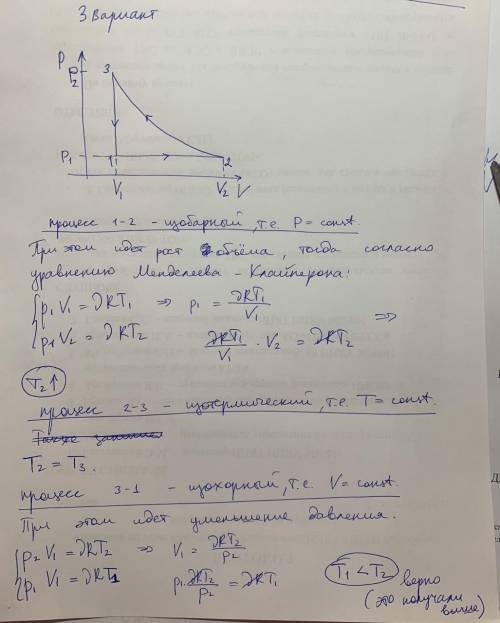 3 Вариант
P
P2
3
P1
1
2
V1
V2
V
процесс 1-2 - изобарный, т.е. P = const.
При этом идет рост объёма, тогда согласно
уравнению Менделеева - Клайперона:
{ p1 V1 = νRT1 => p1 = νRT1 / V1 =>
{ p1 V2 = νRT2 νRT1 / V1 · V2 = νRT2
T2 ↑
процесс 2-3 - изотермический, т.е. T = const.
T2 = T3.
процесс 3-1 - изохорный, т.е. V = const.
При этом идет уменьшение давления.
{ p2 V1 = νRT2 => V1 = νRT2 / p2
{ p1 V1 = νRT1 p1 · νRT2 / p2 = νRT1
T1 < T2 верно
(это получали
выше)